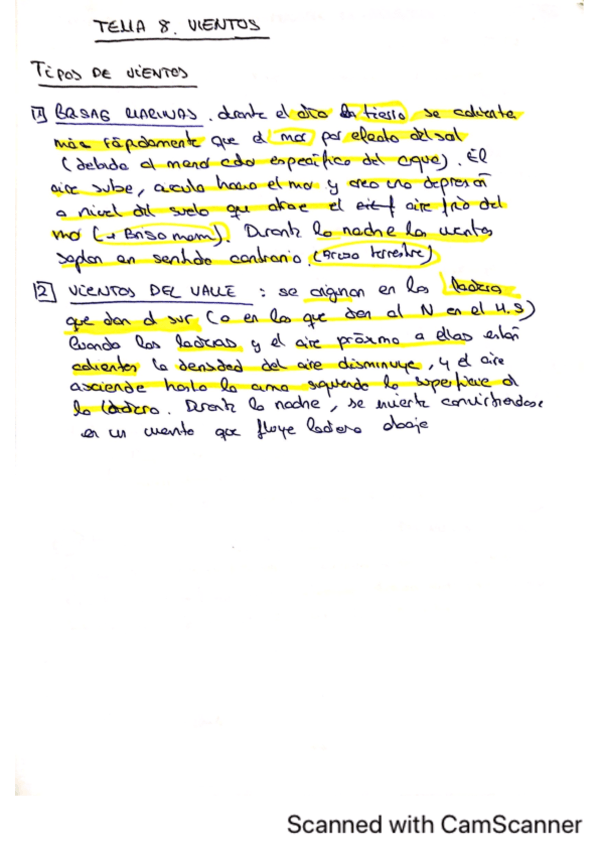 TEMA 8. VIENTOS
TIPOS DE VIENTOS
1 BRISAS MARINAS. durante el día la tierra se calienta
más rápidamente que el mar por efecto del sol
(debido al menor calor específico del agua). El
aire sube, circula hacia el mar y crea una depresión
a nivel del suelo que atrae el aire frío del
mar (→ Brisa marina). Durante la noche los vientos
soplan en sentido contrario. (Brisa terrestre)
2 VIENTOS DEL VALLE : se originan en las laderas
que dan al sur (o en las que dan al N en el H.S)
Cuando las laderas y el aire próximo a ellas están
calientes la densidad del aire disminuye, y el aire
asciende hasta la cima siguiendo la superficie de
la ladera. Durante la noche, se invierte convirtiéndose
en un viento que fluye ladera abajo
Scanned with CamScanner